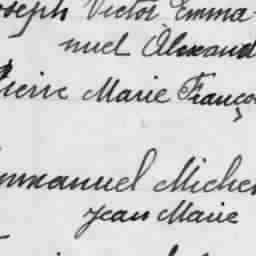 oseph Victor Emma-
nuel Alexand
Pierre Marie Franço
mmanuel Michel
Jean Marie